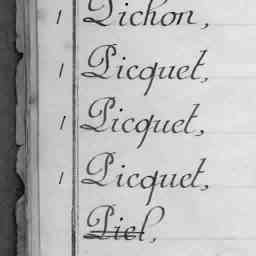 1 Pichon,
1 Picquet,
1 Picquet,
1 Picquet,
Piel,